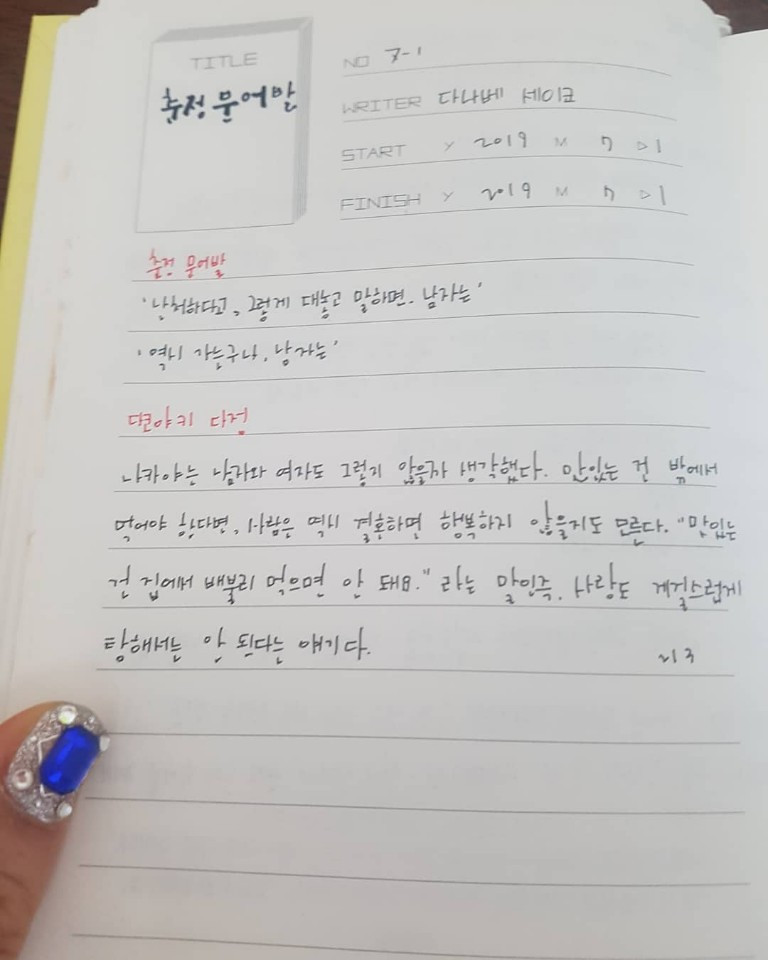 TITLE
춘정 문어발
NO 7-1
WRITER 다나베 세이코
START Y 2019 M 7 D 1
FINISH Y 2019 M 7 D 1
춘정 문어발
'난처하다고, 그렇게 대놓고 말하면. 남자는'
'역시 가는구나, 남자는'
다코야키 다정
나카야는 남자와 여자도 그렇지 않을까 생각했다. 맛있는 건 밖에서
먹어야 한다면, 사람은 역시 결혼하면 행복하지 않을지도 모른다. "맛있는
건 집에서 배불리 먹으면 안 돼요." 라는 말인즉, 사랑도 게걸스럽게
탐해서는 안 된다는 얘기다.
213